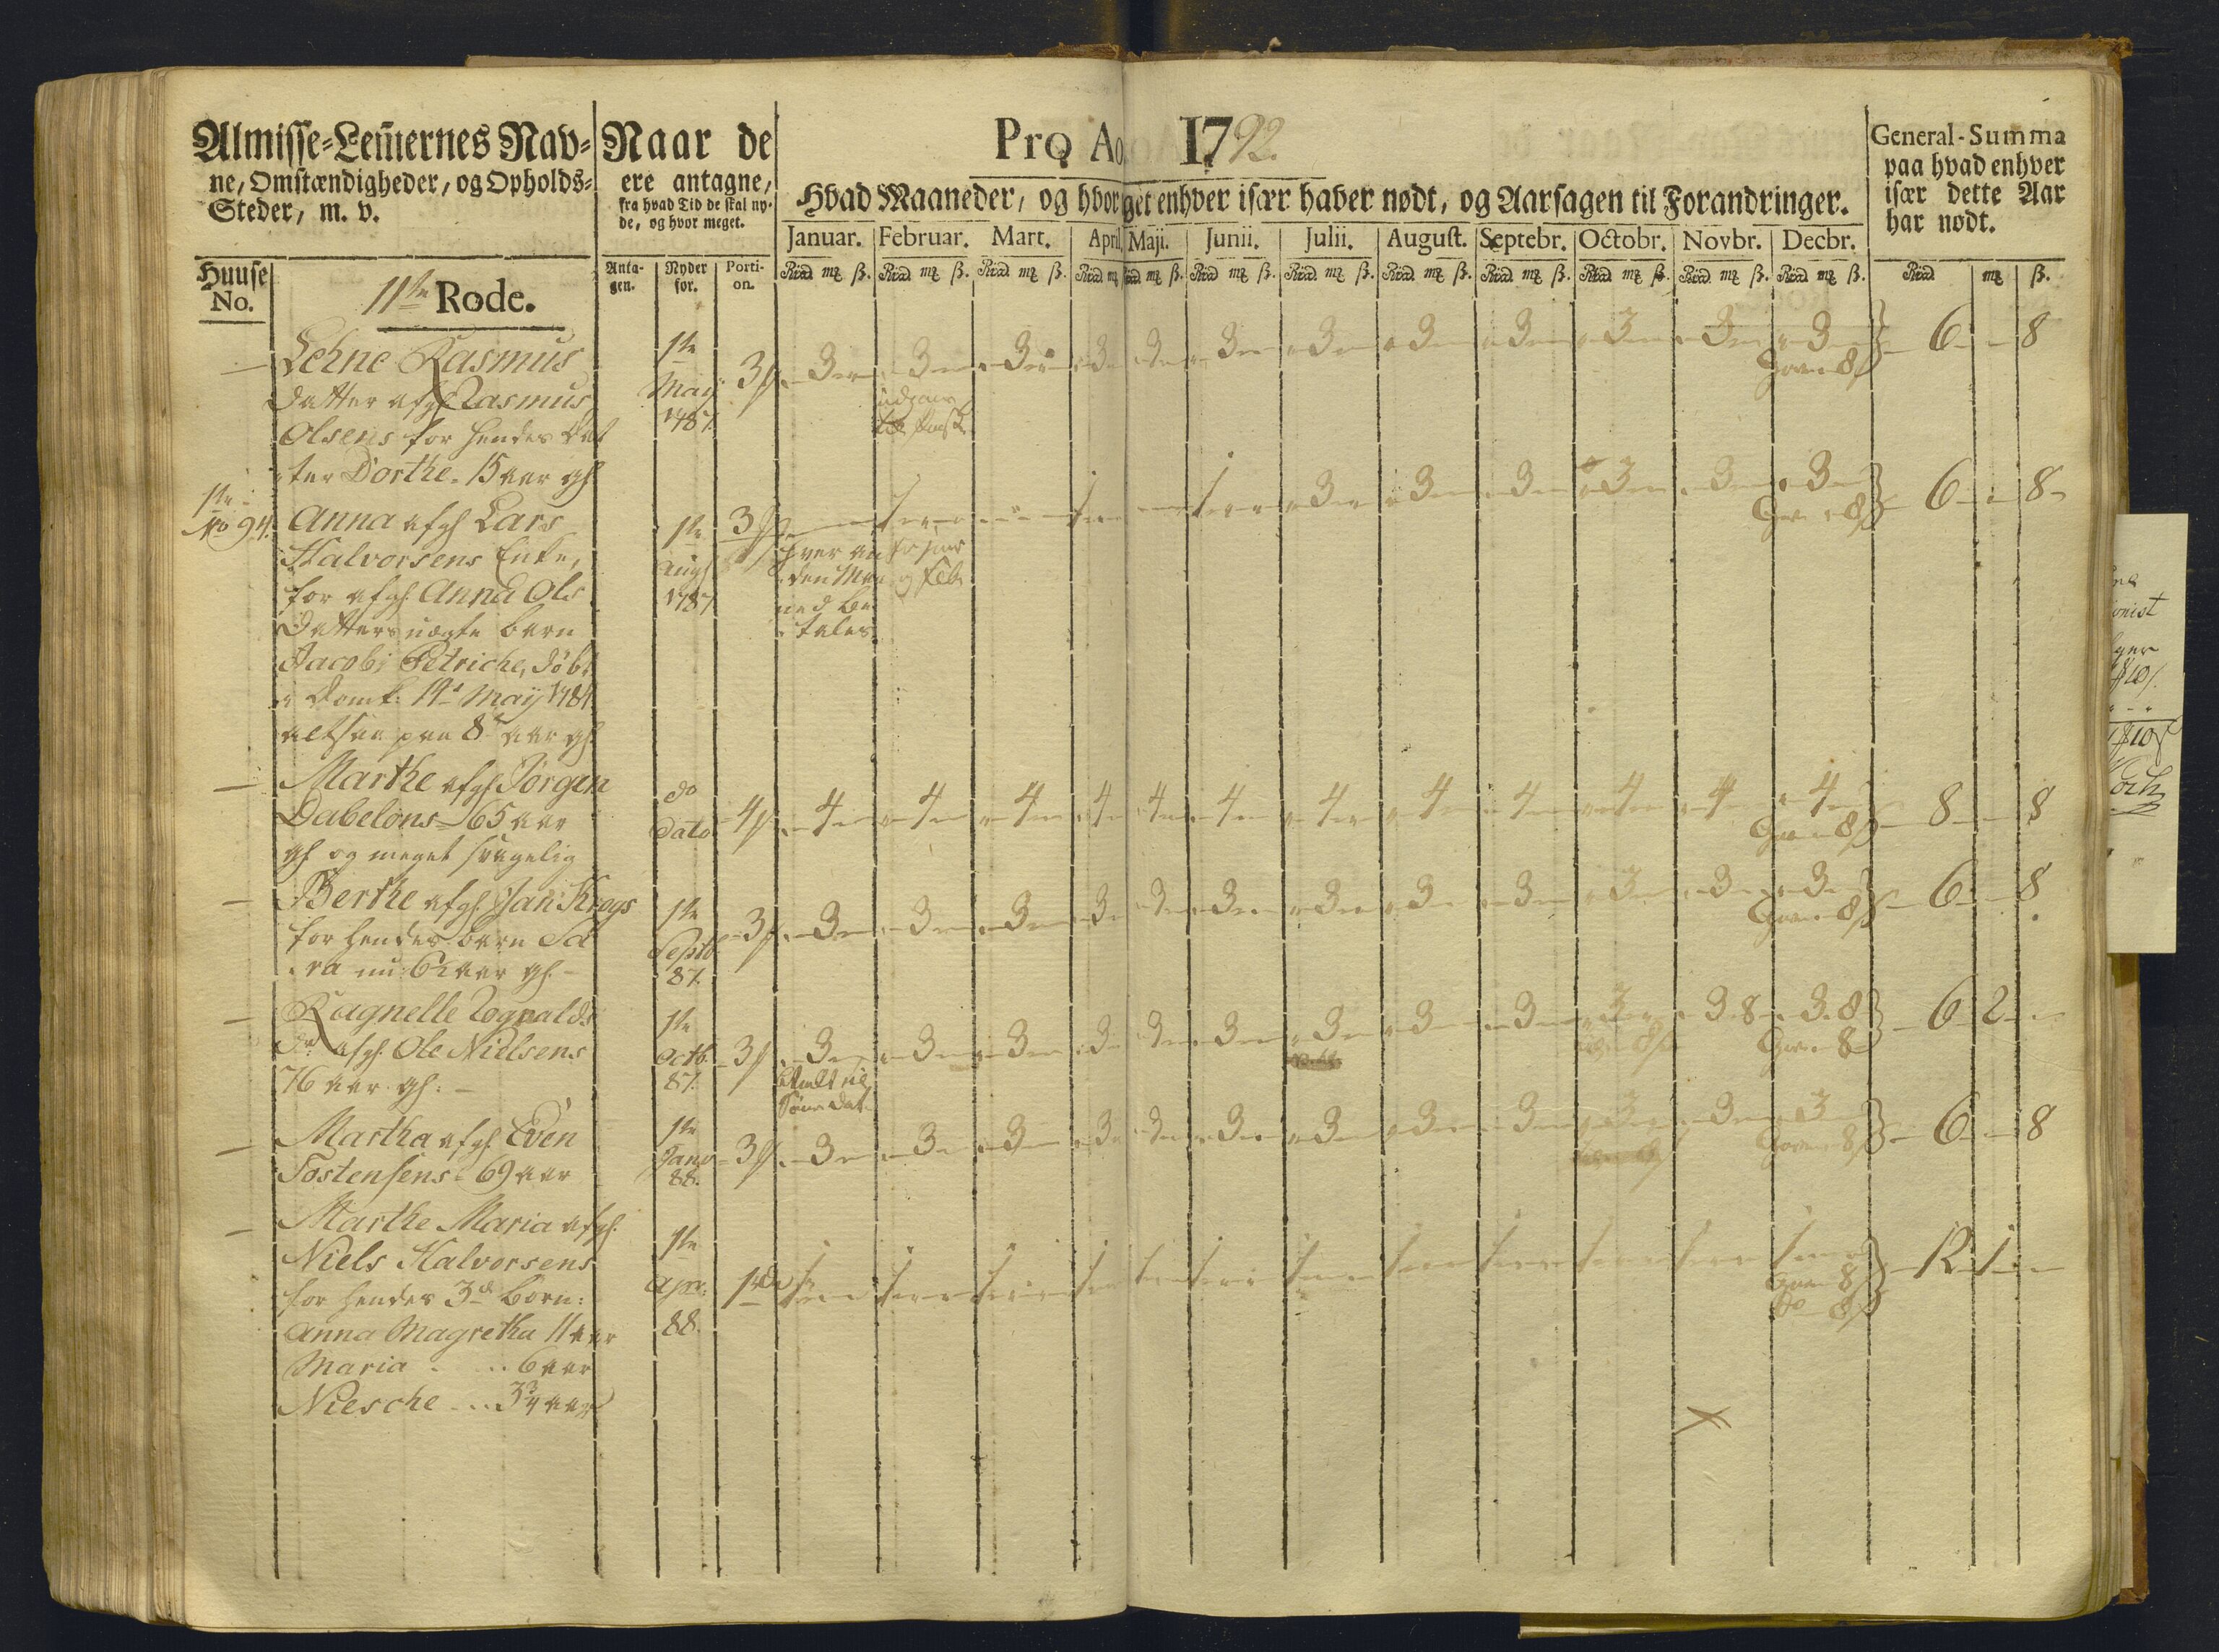 Almisse-Lem̄ernes Nav-
ne, Omstændigheder, og Opholds-
Steder, m. v.
Naar de
ere antagne,
fra hvad Tid de skal ny-
de, og hvor meget.
Pro Ao 1792.
Hvad Maaneder, og hvor meget enhver især haver nødt, og Aarsagen til Forandringer.
General-Summa
paa hvad enhver
især dette Aar
har nødt.
Januar. Februar. Mart. April, Maji. Junii. Julii. August. Septebr. Octobr. Novbr. Decbr.
Huuse
No.
11te Rode.
Anta-
gen.
Nyder
for.
Porti-
on.
Lehne Rasmus
Datter afg. Rasmus
Olsens for hendes Dat
ter Dorthe. 15 aar gl.
1te
May
1787.
3 ß
3 3 3 3 3 3 3 3 3 3 3 3
8 ß
6 8
1te
No 94.
Anna afg. Lars
Halvorsens Enke,
for afg. Anna Ols
Datters uægte barn
Jacobi Petriche, døbt
i Domk: 14d May 1784
altsaa paa 8de aar gl.
1te
Aug
1787
3 ß
hver an
den Maa
ned be
tales
for Janr
og Feb.
1 1 1 3 3 3 3 3 3
8 ß
6 8
Marthe afg. Jørgen
Dabelons 65 aar
gl. og meget svagelig
do
dato
4 ß
4 4 4 4 4 4 4 4 4 4 4 4
8 ß
8 8
Berthe afg. Jan Krogs
for hendes barn Sa
ra nu: 6½ aar gl.
1te
Septb
87.
3 ß
3 3 3 3 3 3 3 3 3 3 3 3
8 ß
6 8
Ragnelle Rognalds
Dr afg. Ole Nielsens
76 aar gl.
1te
Octb.
87.
3 ß
3 3 3 3 3 3 3 3 3 3 3.8 3.8
8
6 2
Martha afg. Even
Tostensens 69 aar
1te
Janv
88.
3 ß
3 3 3 3 3 3 3 3 3 3 3 3
8 ß
6 8
Marthe Maria afg.
Niels Halvorsens
for hendes 3de børn:
Anna Magretha 11 aar
Maria . . . 6 aar
Niesche . . . 3¾ aar
1te
Apr:
88.
1 1 1 1 1 1 1 1 1 1 1 1
8 ß
do 8 ß
12 1